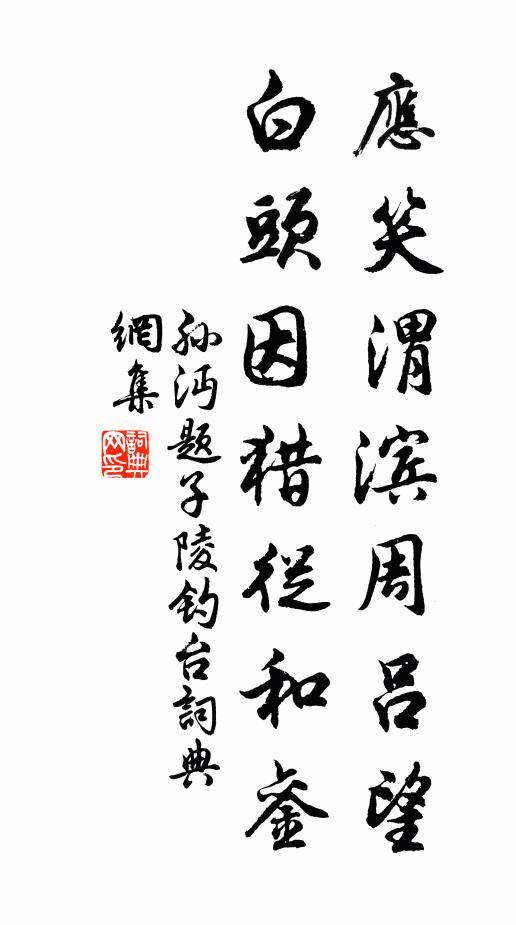 應笑渭滨周吕望
白頭因猎從和銮
孙沔题子陵钓台詞典
網集
詞典
网印